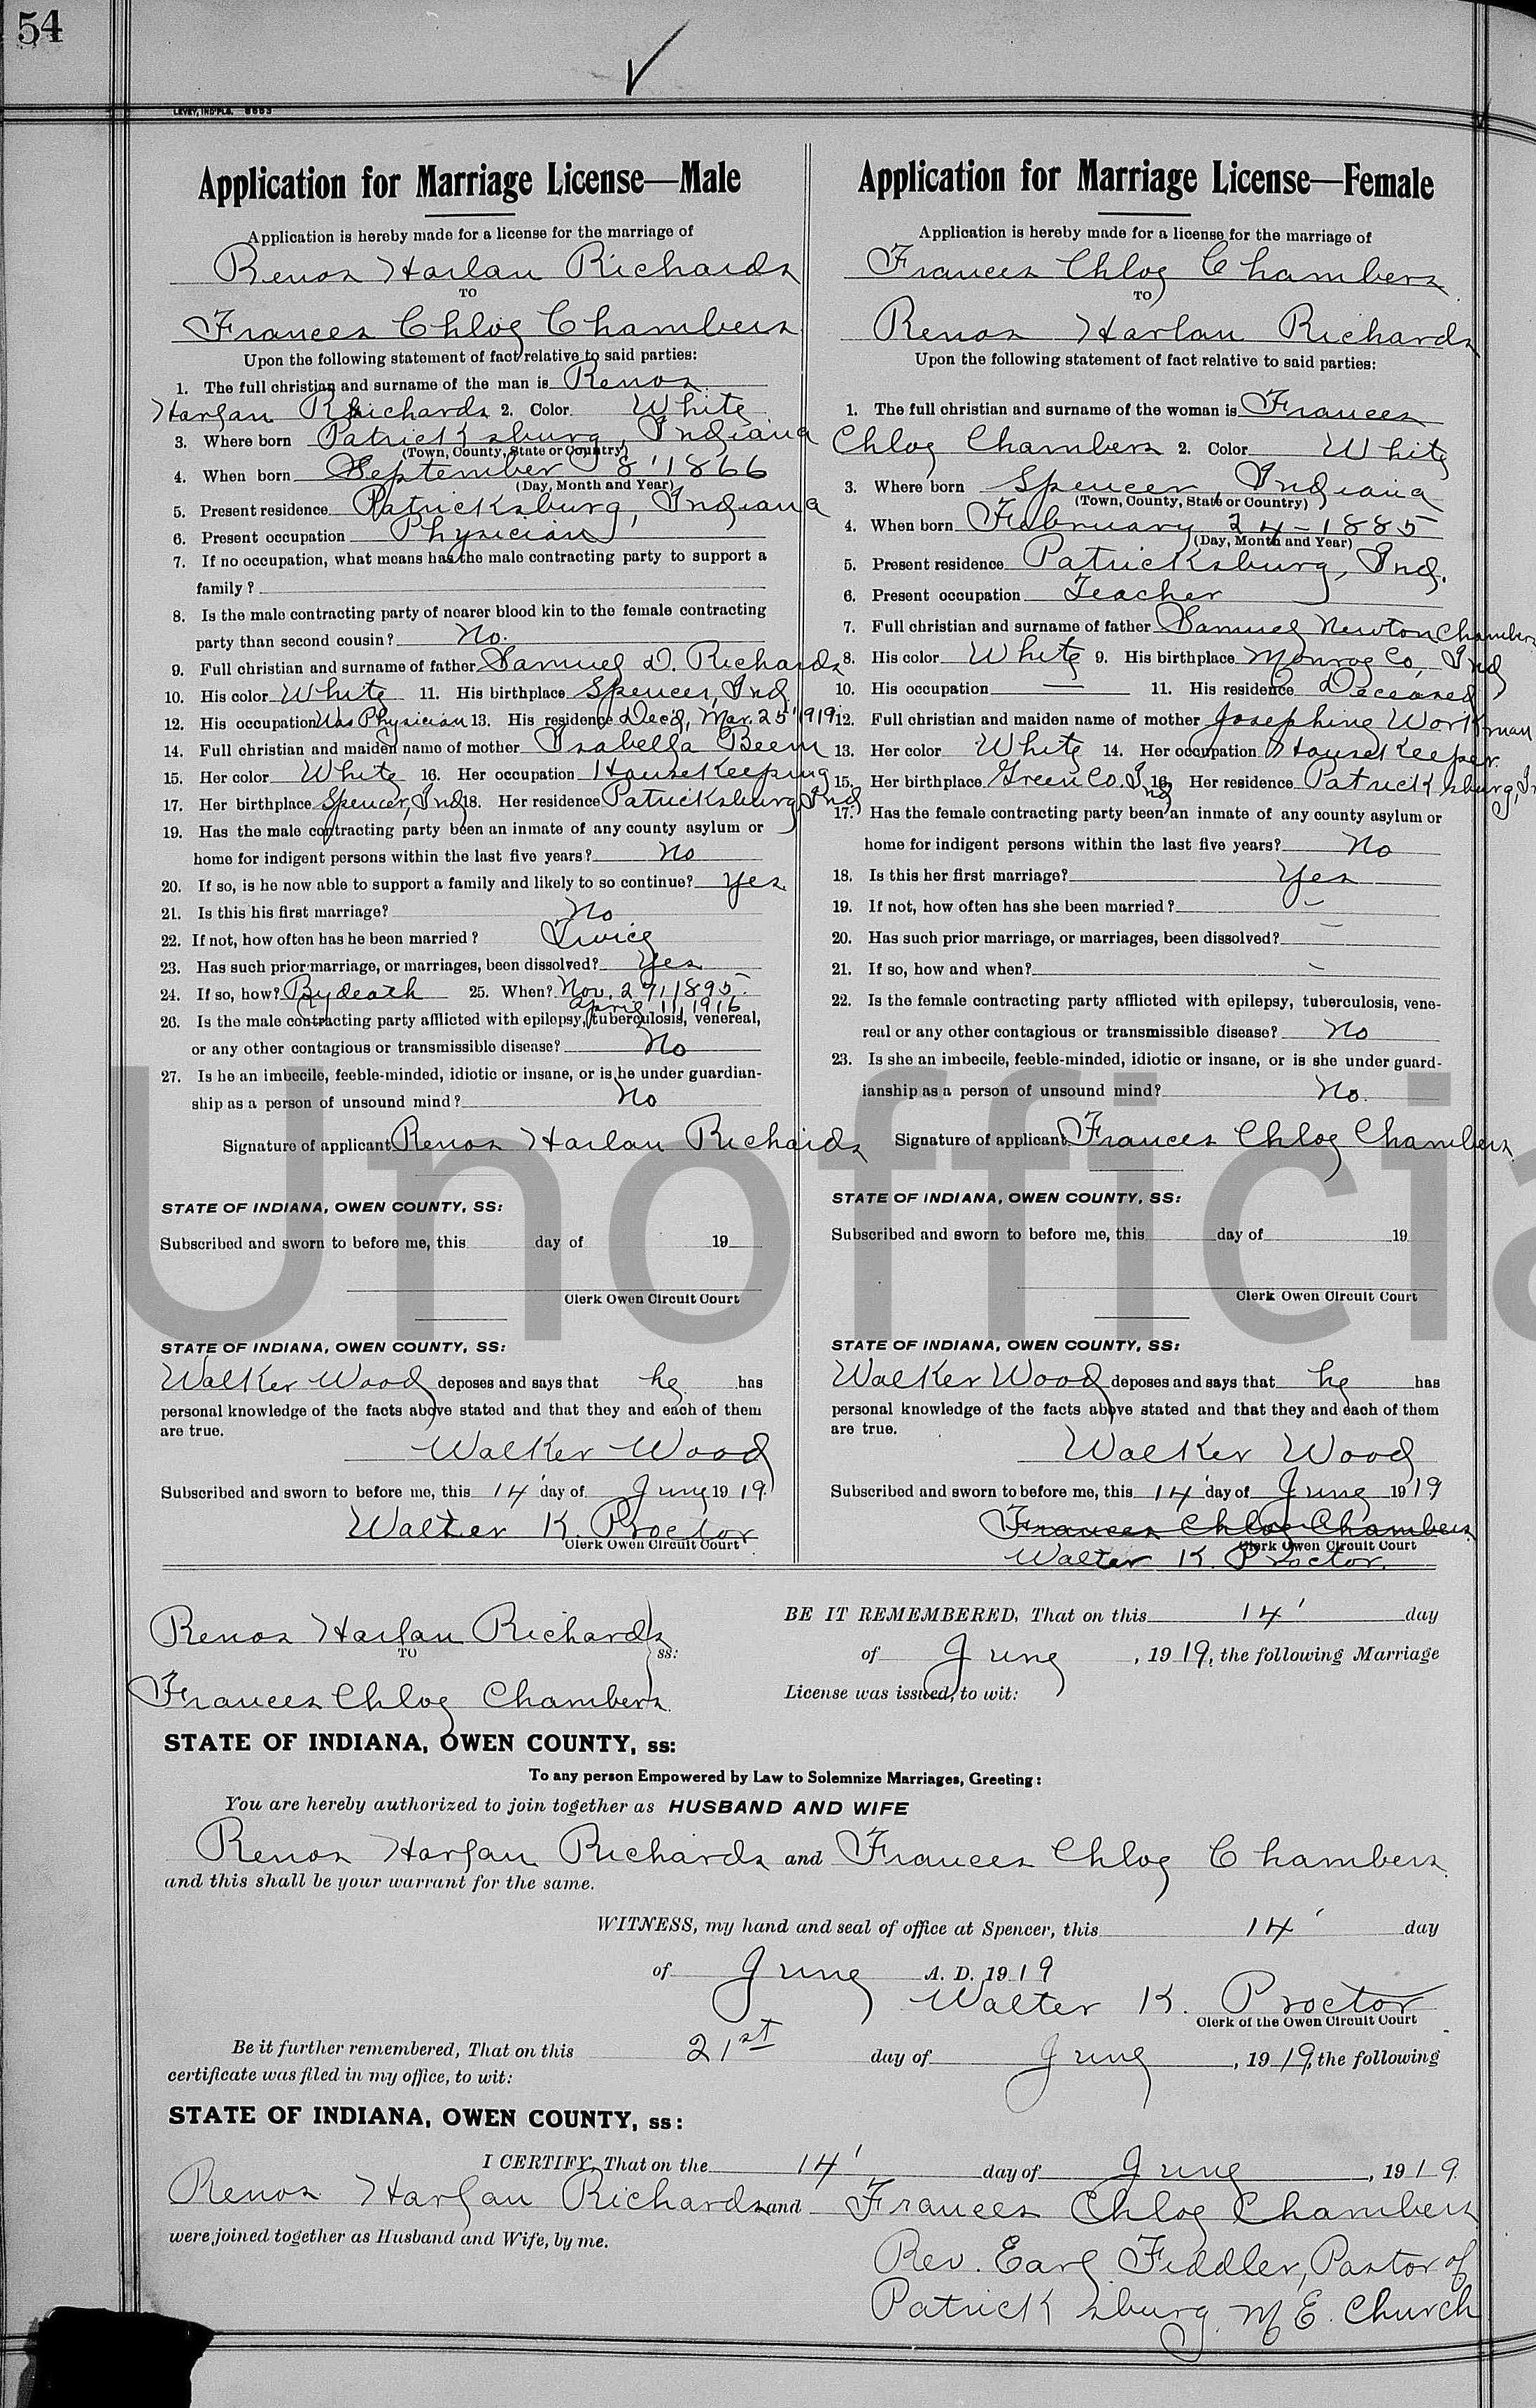 54
LEVEY, IND'PLS. 8553
Application for Marriage License—Male
Application is hereby made for a license for the marriage of
Renos Harlan Richards
TO
Frances Chloe Chambers
Upon the following statement of fact relative to said parties:
1. The full christian and surname of the man is Renos
Harlan Richards 2. Color White
3. Where born Patricksburg, Indiana
(Town, County, State or Country)
4. When born September 8' 1866
(Day, Month and Year)
5. Present residence Patricksburg, Indiana
6. Present occupation Physician
7. If no occupation, what means has the male contracting party to support a
family?
8. Is the male contracting party of nearer blood kin to the female contracting
party than second cousin? No.
9. Full christian and surname of father Samuel D. Richards
10. His color White 11. His birthplace Spencer, Ind
12. His occupation Was Physician 13. His residence Dec'd, Mar. 25' 1919
14. Full christian and maiden name of mother Isabella Beem
15. Her color White 16. Her occupation HouseKeeping
17. Her birthplace Spencer, Ind 18. Her residence Patricksburg, Ind
19. Has the male contracting party been an inmate of any county asylum or
home for indigent persons within the last five years? No
20. If so, is he now able to support a family and likely to so continue? Yes.
21. Is this his first marriage? No
22. If not, how often has he been married? Twice
23. Has such prior marriage, or marriages, been dissolved? Yes
24. If so, how? By death 25. When? Nov. 27, 1895.
April 11, 1916
26. Is the male contracting party afflicted with epilepsy, tuberculosis, venereal,
or any other contagious or transmissible disease? No
27. Is he an imbecile, feeble-minded, idiotic or insane, or is he under guardian-
ship as a person of unsound mind? No
Signature of applicant Renos Harlan Richards
STATE OF INDIANA, OWEN COUNTY, SS:
Subscribed and sworn to before me, this day of 19
Clerk Owen Circuit Court
STATE OF INDIANA, OWEN COUNTY, SS:
Walker Wood deposes and says that he has
personal knowledge of the facts above stated and that they and each of them
are true.
Walker Wood
Subscribed and sworn to before me, this 14' day of June 1919.
Walter K. Proctor
Clerk Owen Circuit Court
Application for Marriage License—Female
Application is hereby made for a license for the marriage of
Frances Chloe Chambers
TO
Renos Harlan Richards
Upon the following statement of fact relative to said parties:
1. The full christian and surname of the woman is Frances
Chloe Chambers 2. Color White
3. Where born Spencer Indiana
(Town, County, State or Country)
4. When born February 24-1885
(Day, Month and Year)
5. Present residence Patricksburg, Ind.
6. Present occupation Teacher
7. Full christian and surname of father Samuel Newton Chambers
8. His color White 9. His birthplace Monroe Co, Ind
10. His occupation — 11. His residence Deceased
12. Full christian and maiden name of mother Josephine Workman
13. Her color White 14. Her occupation HouseKeeper
15. Her birthplace Green Co. Ind 16. Her residence Patricksburg, In
17. Has the female contracting party been an inmate of any county asylum or
home for indigent persons within the last five years? No
18. Is this her first marriage? Yes
19. If not, how often has she been married? –
20. Has such prior marriage, or marriages, been dissolved? –
21. If so, how and when? –
22. Is the female contracting party afflicted with epilepsy, tuberculosis, vene-
real or any other contagious or transmissible disease? No
23. Is she an imbecile, feeble-minded, idiotic or insane, or is she under guard-
ianship as a person of unsound mind? No.
Signature of applicant Frances Chloe Chambers
STATE OF INDIANA, OWEN COUNTY, SS:
Subscribed and sworn to before me, this day of 19
Clerk Owen Circuit Court
STATE OF INDIANA, OWEN COUNTY, SS:
Walker Wood deposes and says that he has
personal knowledge of the facts above stated and that they and each of them
are true.
Walker Wood
Subscribed and sworn to before me, this 14' day of June 1919
Frances Chloe Chambers
Clerk Owen Circuit Court
Walter K. Proctor.
Renos Harlan Richards
TO ss:
Frances Chloe Chambers
BE IT REMEMBERED, That on this 14' day
of June, 1919, the following Marriage
License was issued, to wit:
STATE OF INDIANA, OWEN COUNTY, ss:
To any person Empowered by Law to Solemnize Marriages, Greeting:
You are hereby authorized to join together as HUSBAND AND WIFE
Renos Harlan Richards and Frances Chloe Chambers
and this shall be your warrant for the same.
WITNESS, my hand and seal of office at Spencer, this 14' day
of June A. D. 1919
Walter K. Proctor
Clerk of the Owen Circuit Court
Be it further remembered, That on this 21st day of June, 1919, the following
certificate was filed in my office, to wit:
STATE OF INDIANA, OWEN COUNTY, ss:
I CERTIFY, That on the 14' day of June, 1919
Renos Harlan Richards and Frances Chloe Chambers
were joined together as Husband and Wife, by me.
Rev. Earl Fiddler, Pastor of
Patricksburg M E. Church
Unofficia